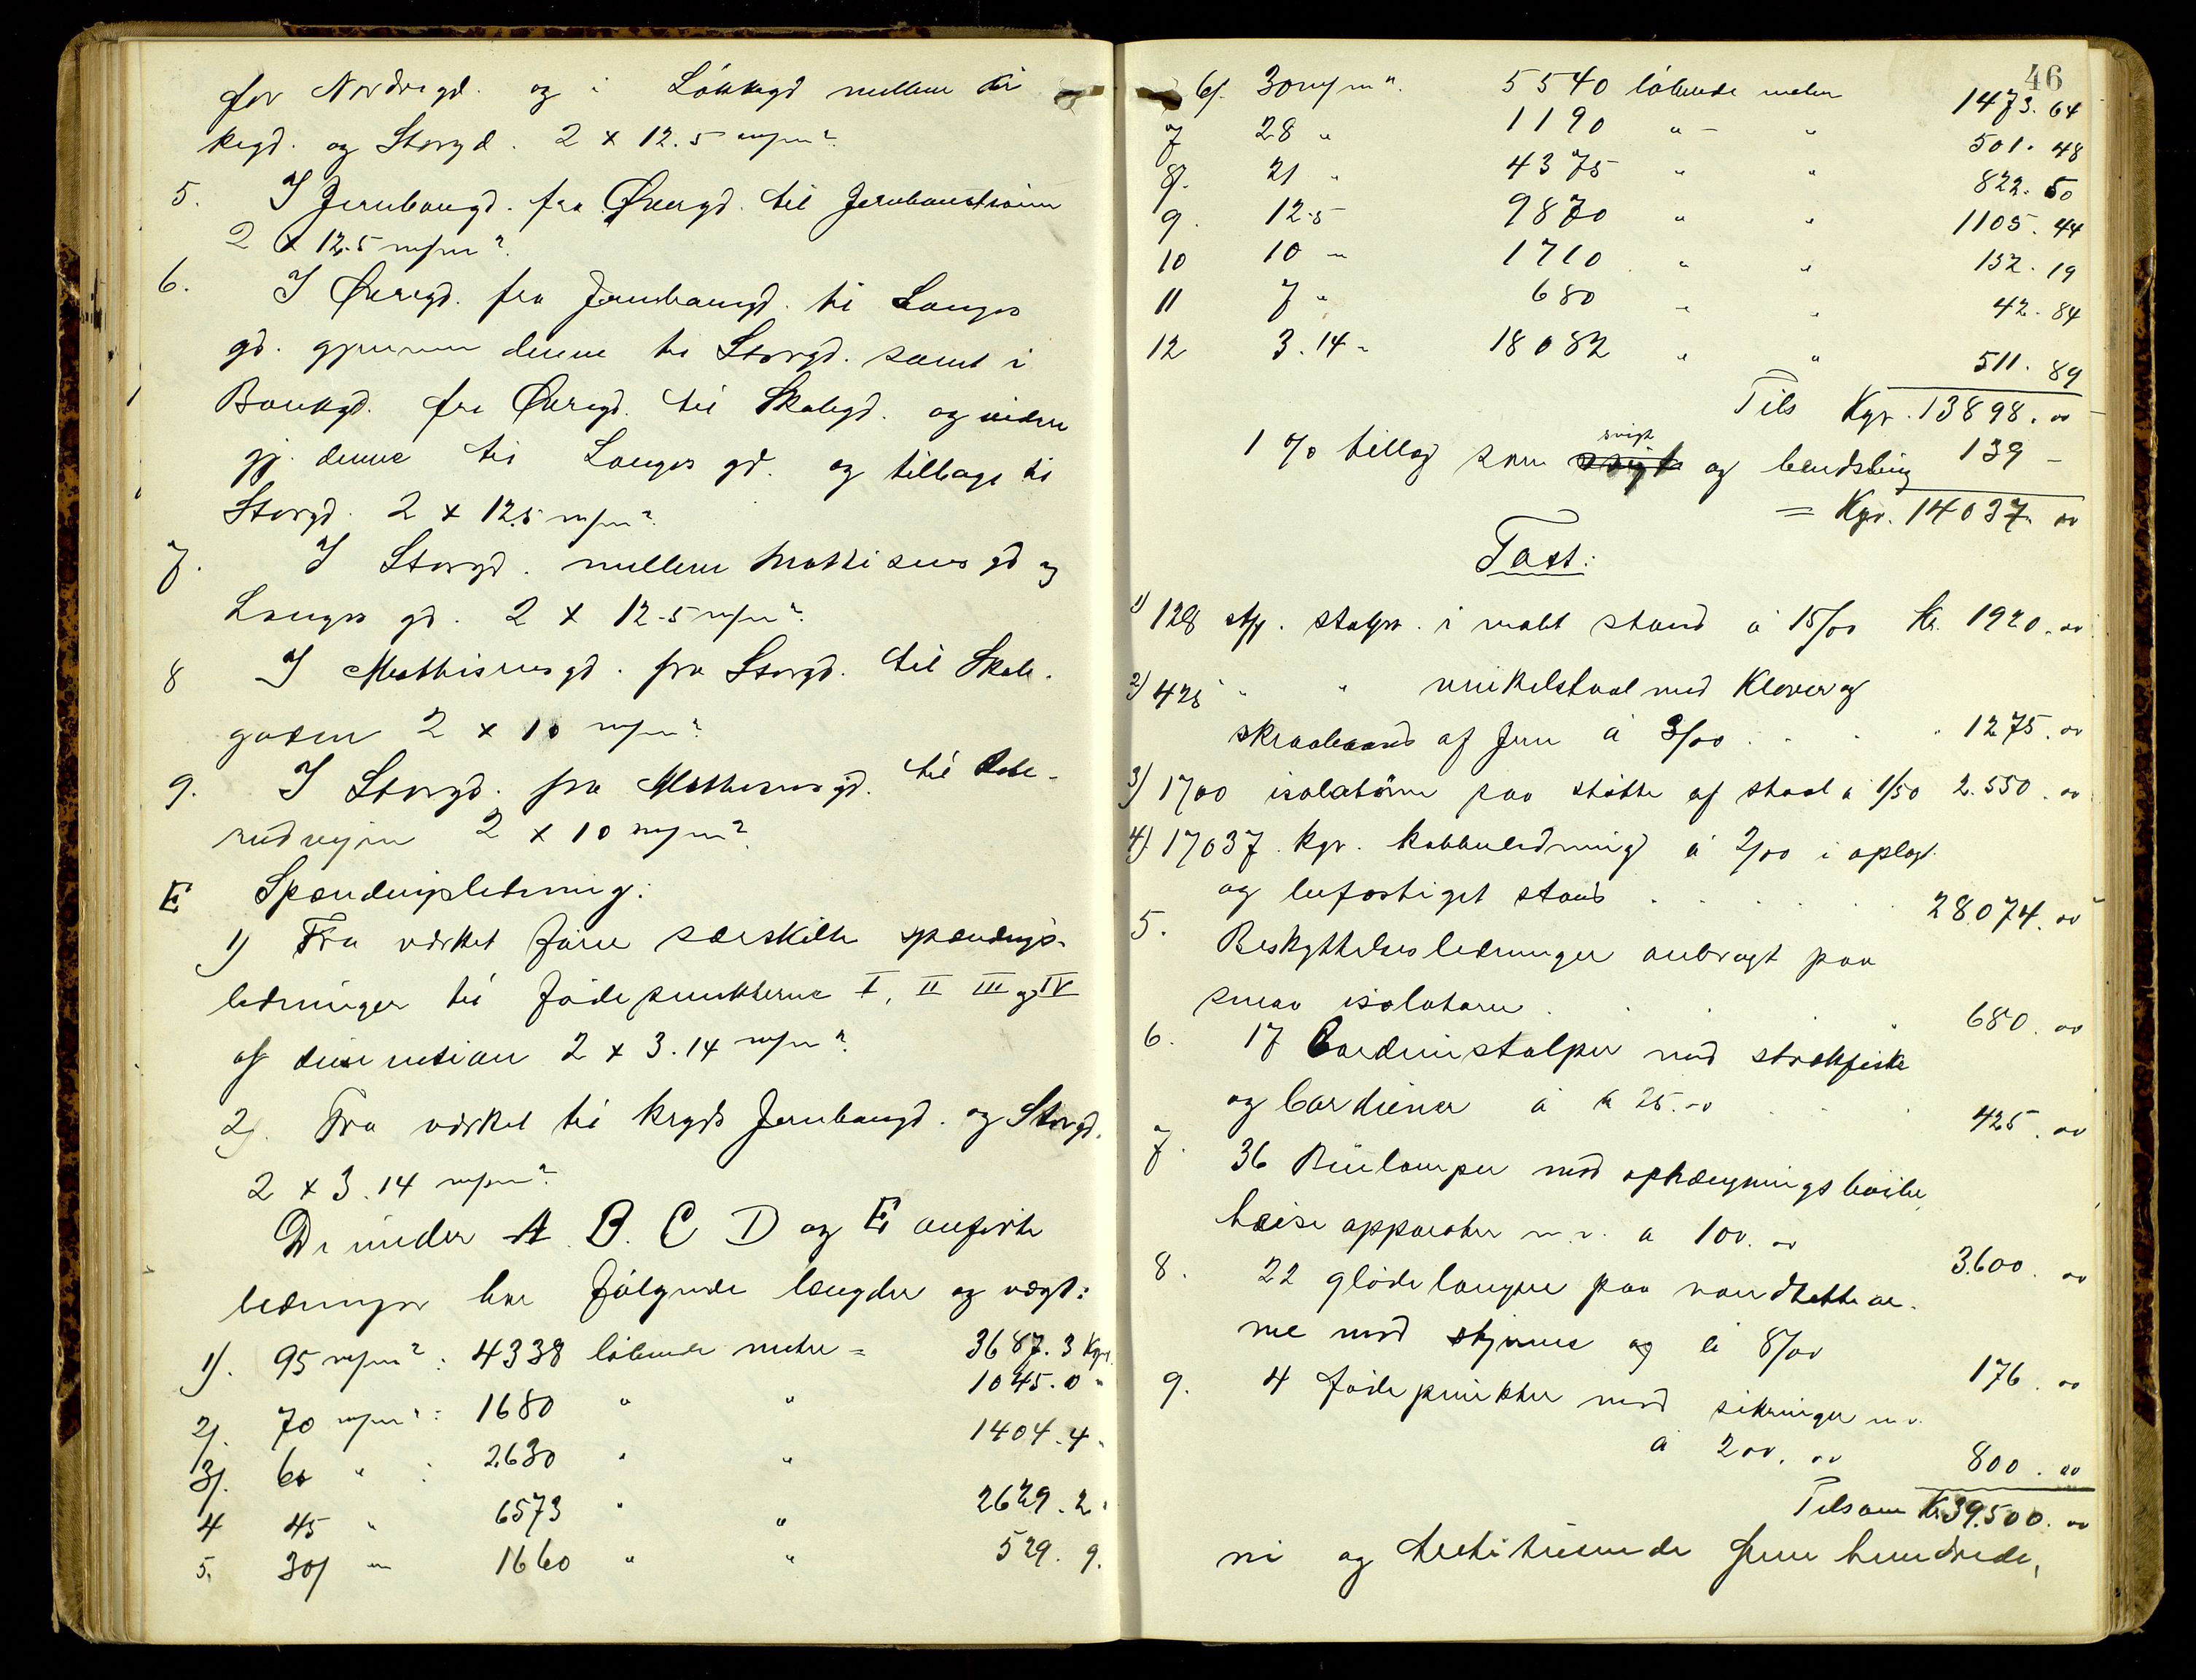 for Nordregd. og i Løkkegd mellem Kir
kegd. og Storgd. 2 x 12.5 m/m².
5. I Jernbangd. fra Øvergd. til Jernbanetraim
2 x 12.5 m/m².
6. I Øvregd. fra Jernbaengd. til Langes
gd. gjennem denne til Storgd. samt i
Bankgd. fra Øvregd. til Skolegd. og videre
gj. denne til Langes gd. og tilbage til
Storgd. 2 x 12.5 m/m².
7. I Storgd. mellem Mathisens gd og
Langes gd. 2 x 12.5 m/m².
8 I Mathisensgd. fra Storgd. til Skole-
gaden 2 x 10 m/m².
9. I Storgd. fra Mathisensgd. til
rudvejen 2 x 10 m/m².
E Spændingsledning:
1) Fra værket føres særskilte spændings-
ledninger til fødepunkterne I, II III og IV
af dimension 2 x 3.14 m/m².
2). Fra værket til kryds Jernbangd. og Storgd.
2 x 3.14 m/m².
De under A. B. C D og E anførte
ledninger har følgende længder og vægt:
1). 95 m/m²: 4338 løbende metre = 3687.3 Kgr.
2). 70 m/m²: 1680 " " 1045.0 "
3). 60 " : 2630 " " 1404.4 "
4 45 " 6573 " " 2629.2 "
5. 30/ " 1660 " " 529.9.
46
6/. 30 m/m". 5540 løbende meter 1473.64
7 28 " 1190 " - " 501.48
8. 21 " 4375 " " 822.50
9. 12.5 9870 " " 1105.44
10 10 " 1710 " " 152.19
11 7 " 680 " " 42.84
12 3.14 " 18082 " " 511.89
Tils Kgr. 13898.00
svigt
1 % tillæg som svigt og bendsling 139 -
= Kgr. 14037.00
Tast:
1) 128 st/. stolper i malt stand á 15/00 Kr. 1920.00
2) 425 " " vinkelstaal med Klover og
skraabaand af Jern á 3/00 . . . 1275.00
3) 1700 isolatører paa støtte af staal á 1/50 2.550.00
4) 17037 kgr. kobberledning á 2/00 i oplagt
og befæstiget stand . . . . 28.074.00
5. Beskyttelsesledninger anbragt paa
smaa isolatorer . . . . 680.00
6. 17 Cardinstolper med strækfiske
og Cardiener á kr 25.00 . . 425.00
7. 36 Buelamper med ophængningsbøiler,
heise apparater m.v. á 100.00 3.600.00
8. 22 glødelamper paa vandtette ar-
me med skjerme og á 8/00 176.00
9. 4 fødepunkter med sikringer m.v.
á 200.00 800.00
Tilsam Kr. 39.500.00
ni og tretitusinde fem hundrede,